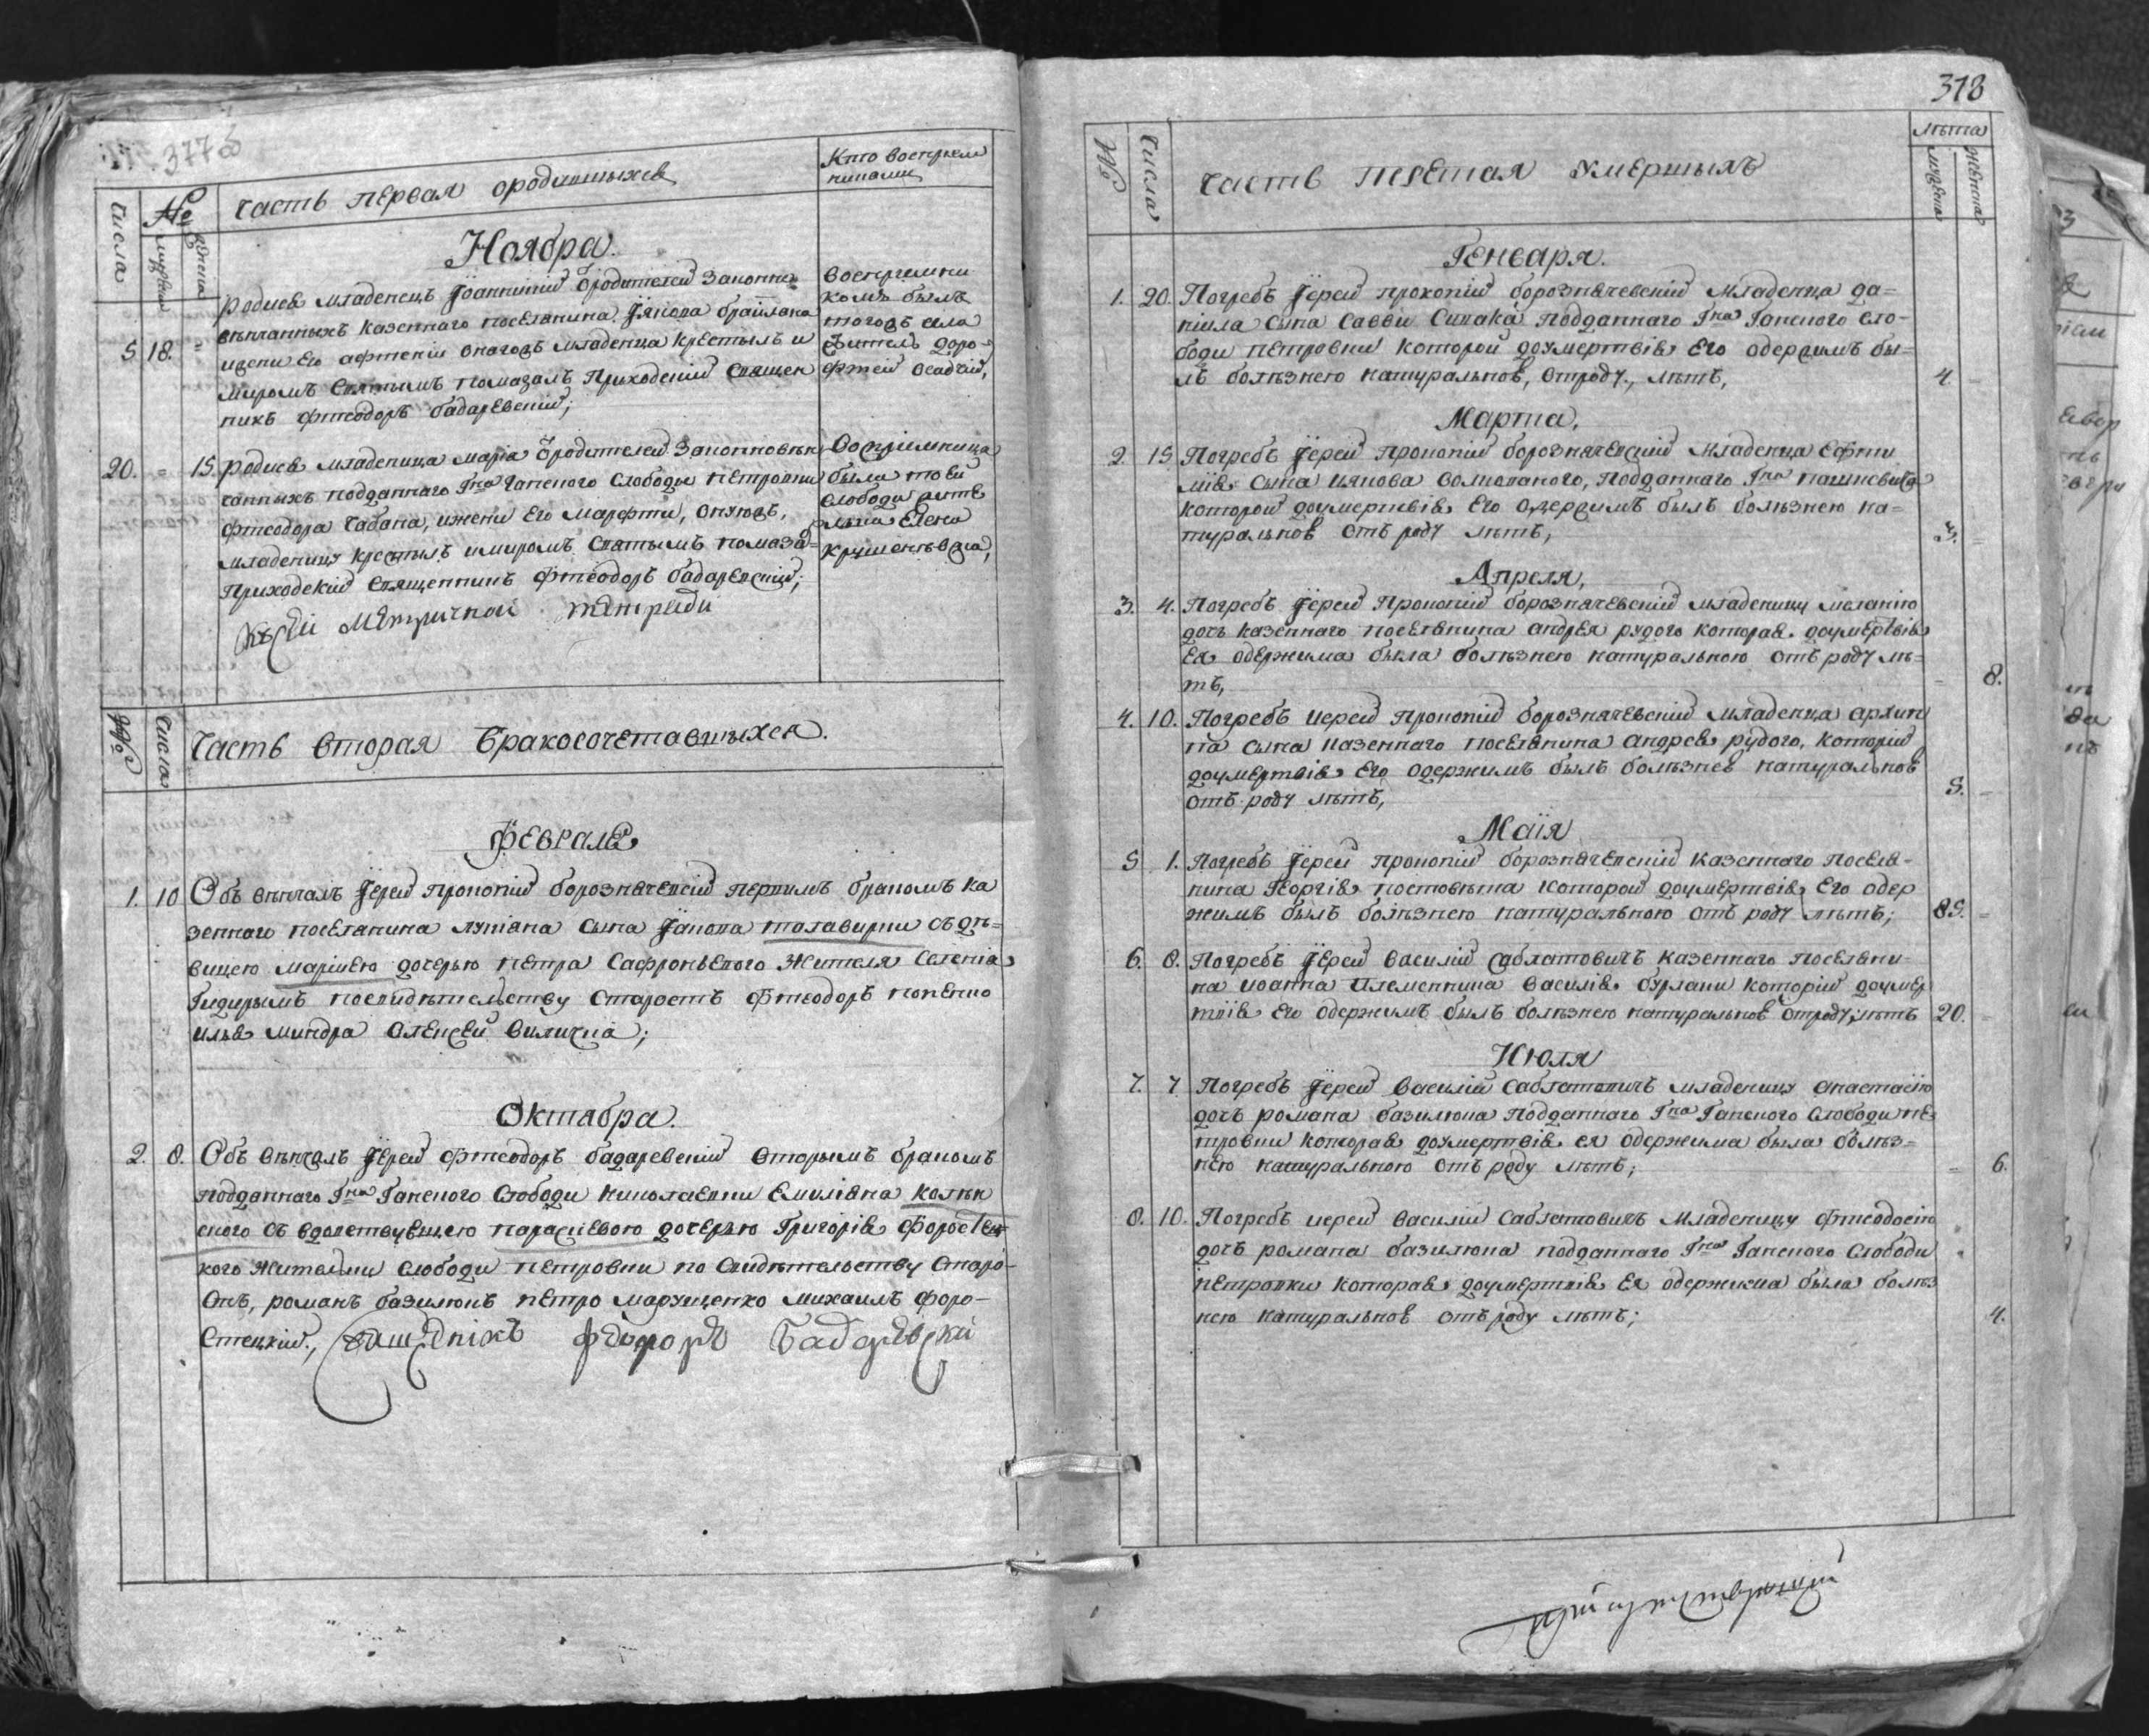 377
Числа
№
мужеска
женска
Часть первая ородившыхся
Кто восприем
никами
Ноября.
5 18. Родися младенецъ Іоанникій Ўродителей Законно
вѣнчанныхъ казенного поселянина Іякова браилана
ижени Его афтенiи Онагожъ младенца крестилъ и
миромъ Святымъ помазалъ Приходскій Священ
никъ Фтеодоръ бадаревскій;
восприемни
комъ былъ
тогожъ села
житель доро-
фтей осадчій,
20. = 15. Родися младеница маріа Ўродителей Законновѣн
чанныхъ подданного Гна Ганского Слободы петровки
Фтеодора чабана, ижени Его марфти, Онуюжъ,
младеницу крестилъ имиромъ Святымъ помаза-
Приходский Священникъ Фтеодоръ бадаревскій;
Воспріемница
была тоей
Слободи жите
лька Елена
Къ Сей Метричной тетради
№
Числа
Часть вторая Бракосочетавшыхся.
Февраля
1. 10 Объ вѣнчалъ Їерей прокопій борознячевскій первимъ бракомъ ка
зенного поселянина лукіана сына Іакова палавирки съ дѣ=
вицею маріиею дочерью петра Сафроньского жителя Селенія
Гидиримъ посвидѣтельству Старостъ Фтеодоръ попенко
илья миндра Алексей
Октябра.
2. 8. Объ вѣнчалъ Їерей Фтеодоръ бадаревский вторымъ бракомъ
подданного Гна Ганского Слободи николаевки Емиліана колѣн
ского съ вдовствующею параскевою дочерью Григорія Форостец
кого жительки слободи петровки по Свидѣтельству Старо-
Стъ, романъ базилюкъ петро марущенко михаилъ форо-
Стецкий., Свищеникъ Федоръ Бадаревски
378
№
Числа
Часть третая умершыхъ
лѣта
мужеска
женска
Генваря.
1. 20. Погребъ Їерей прокопій борознячевскій младенца да=
ніила сына Савви Синака подданного Гна Ганского сло-
боди петровки которой доумертвія его одержимъ бы-
лъ болѣзнею натуральною, отроду., лѣтъ, 4 =
Марта,
2. 15 Погребъ Їерей прокопій борознячевскій младенца Ефти
мія сына иякова волошаного, подданного Гна
которой доумертвія его одержимъ былъ болѣзнею на=
туральною отъ роду лѣтъ, 3. =
Апреля,
3. 4. Погребъ Їерей Прокопій борознячевскій младеницу меланію
дочь казенного поселянина андрея рудого которая доумертвія
ея одержима была болѣзнею натуральною отъ роду лѣ=
тъ, - 8.
4. 10. Погребъ иерей прокопій борознячевскій младенца архип
па сына казенного поселянина андрея рудого, который
доумертвія Его одержимъ былъ болѣзнею натуральною
отъ роду лѣтъ, 5. -
Маія
5 1. Погребъ Їерей прокопій борознячевскій казенного поселя-
нина Георгія постовѣта которой доумертвія Его одер
жимъ былъ болѣзнею натуральною отъ роду лѣтъ; 85. =
6. 8. Погребъ Їерей василій Саблатовичъ казенного поселяни-
на иоанна племенника василія бурлаки который доумер
твія Его одержимъ былъ болѣзнею натуральною отроду; лѣтъ 20. -
Июля
7. 7 Погребъ Їерей василій Саблатовичъ младеницу анастасію
дочъ романа базилюка подданного Гна Ганского Слободи пе-
тровки которая доумертвія ея одержима была болѣз=
нею натуральною отъ роду лѣтъ; = 6.
8. 10. Погребъ иерей василій Саблатовичъ младеницу фтеодосію
дочъ романа базилюка подданного Гна Ганского Слободи
петровки которая доумертвія Ея одержима была болѣз
нею натуральною отъ роду лѣтъ; 4.